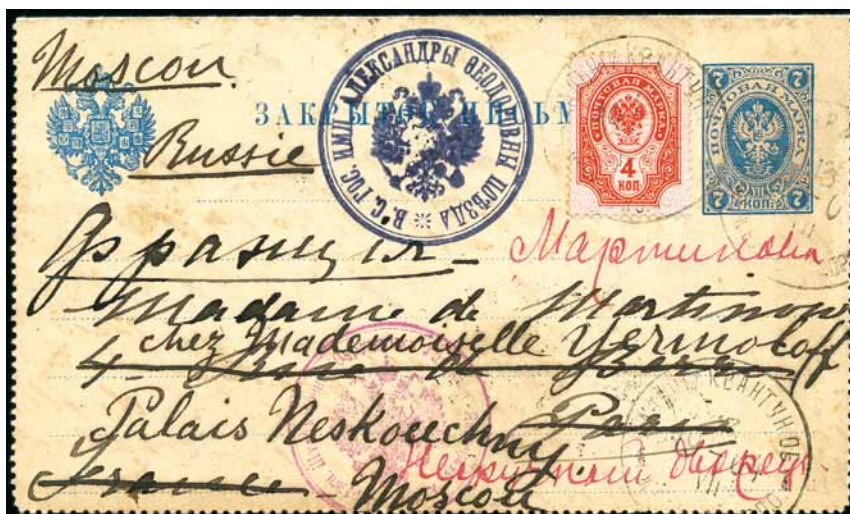 Moscou.
Russie
ЗАКРЫТОЕ ПИСЬМО
В. С. ГОС. ИМП. АЛЕКСАНДРЫ ѲЕОДОРОВНЫ ПОѢЗДА
ПОЧТОВАЯ МАРКА
4
КОП
7 7
ПОЧТОВАЯ МАРКА
7 КОП. 7
Франция
Мартинова
Madame de Martinow
chez Mademoiselle Yermoloff
4
Palais Neskouchny.
France
Moscou
КВАНТУН. ОБ